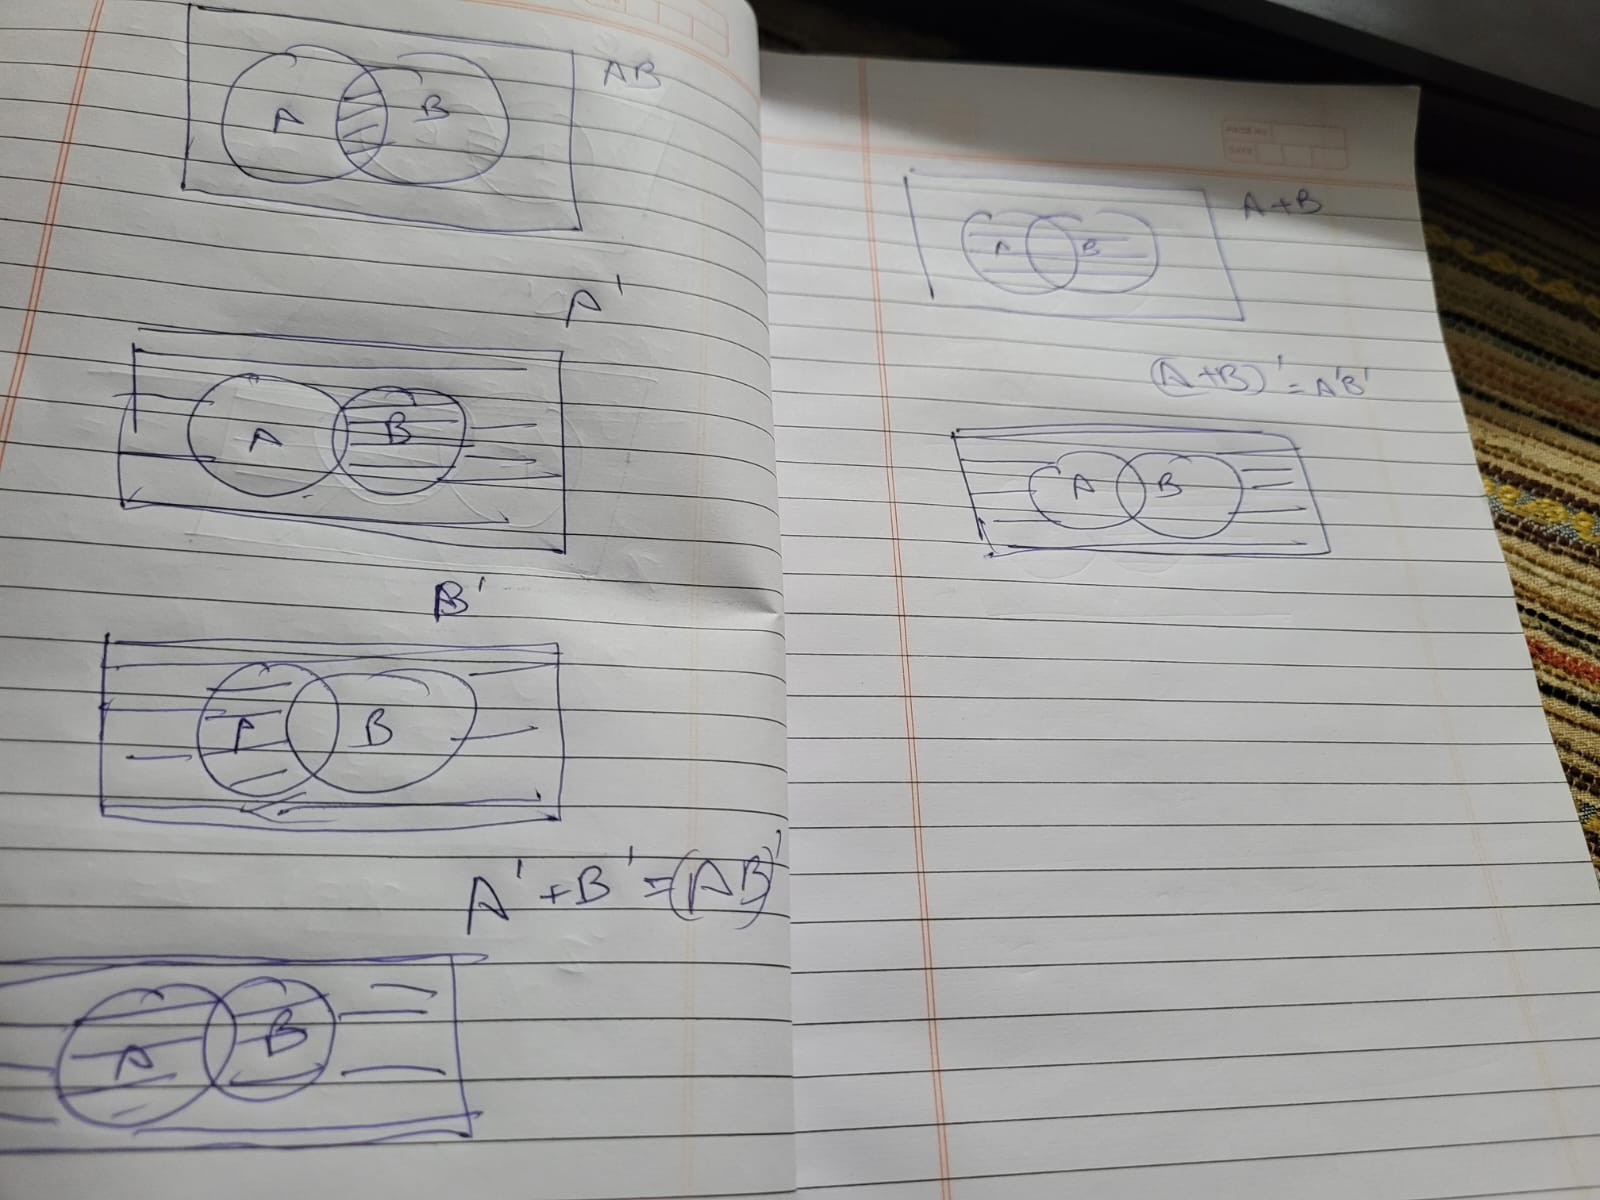 AB
A B
A'
A B
B'
A B
A' + B' = (AB)'
A B
PAGE NO
DATE
A+B
A B
(A+B)' = A'B'
A B